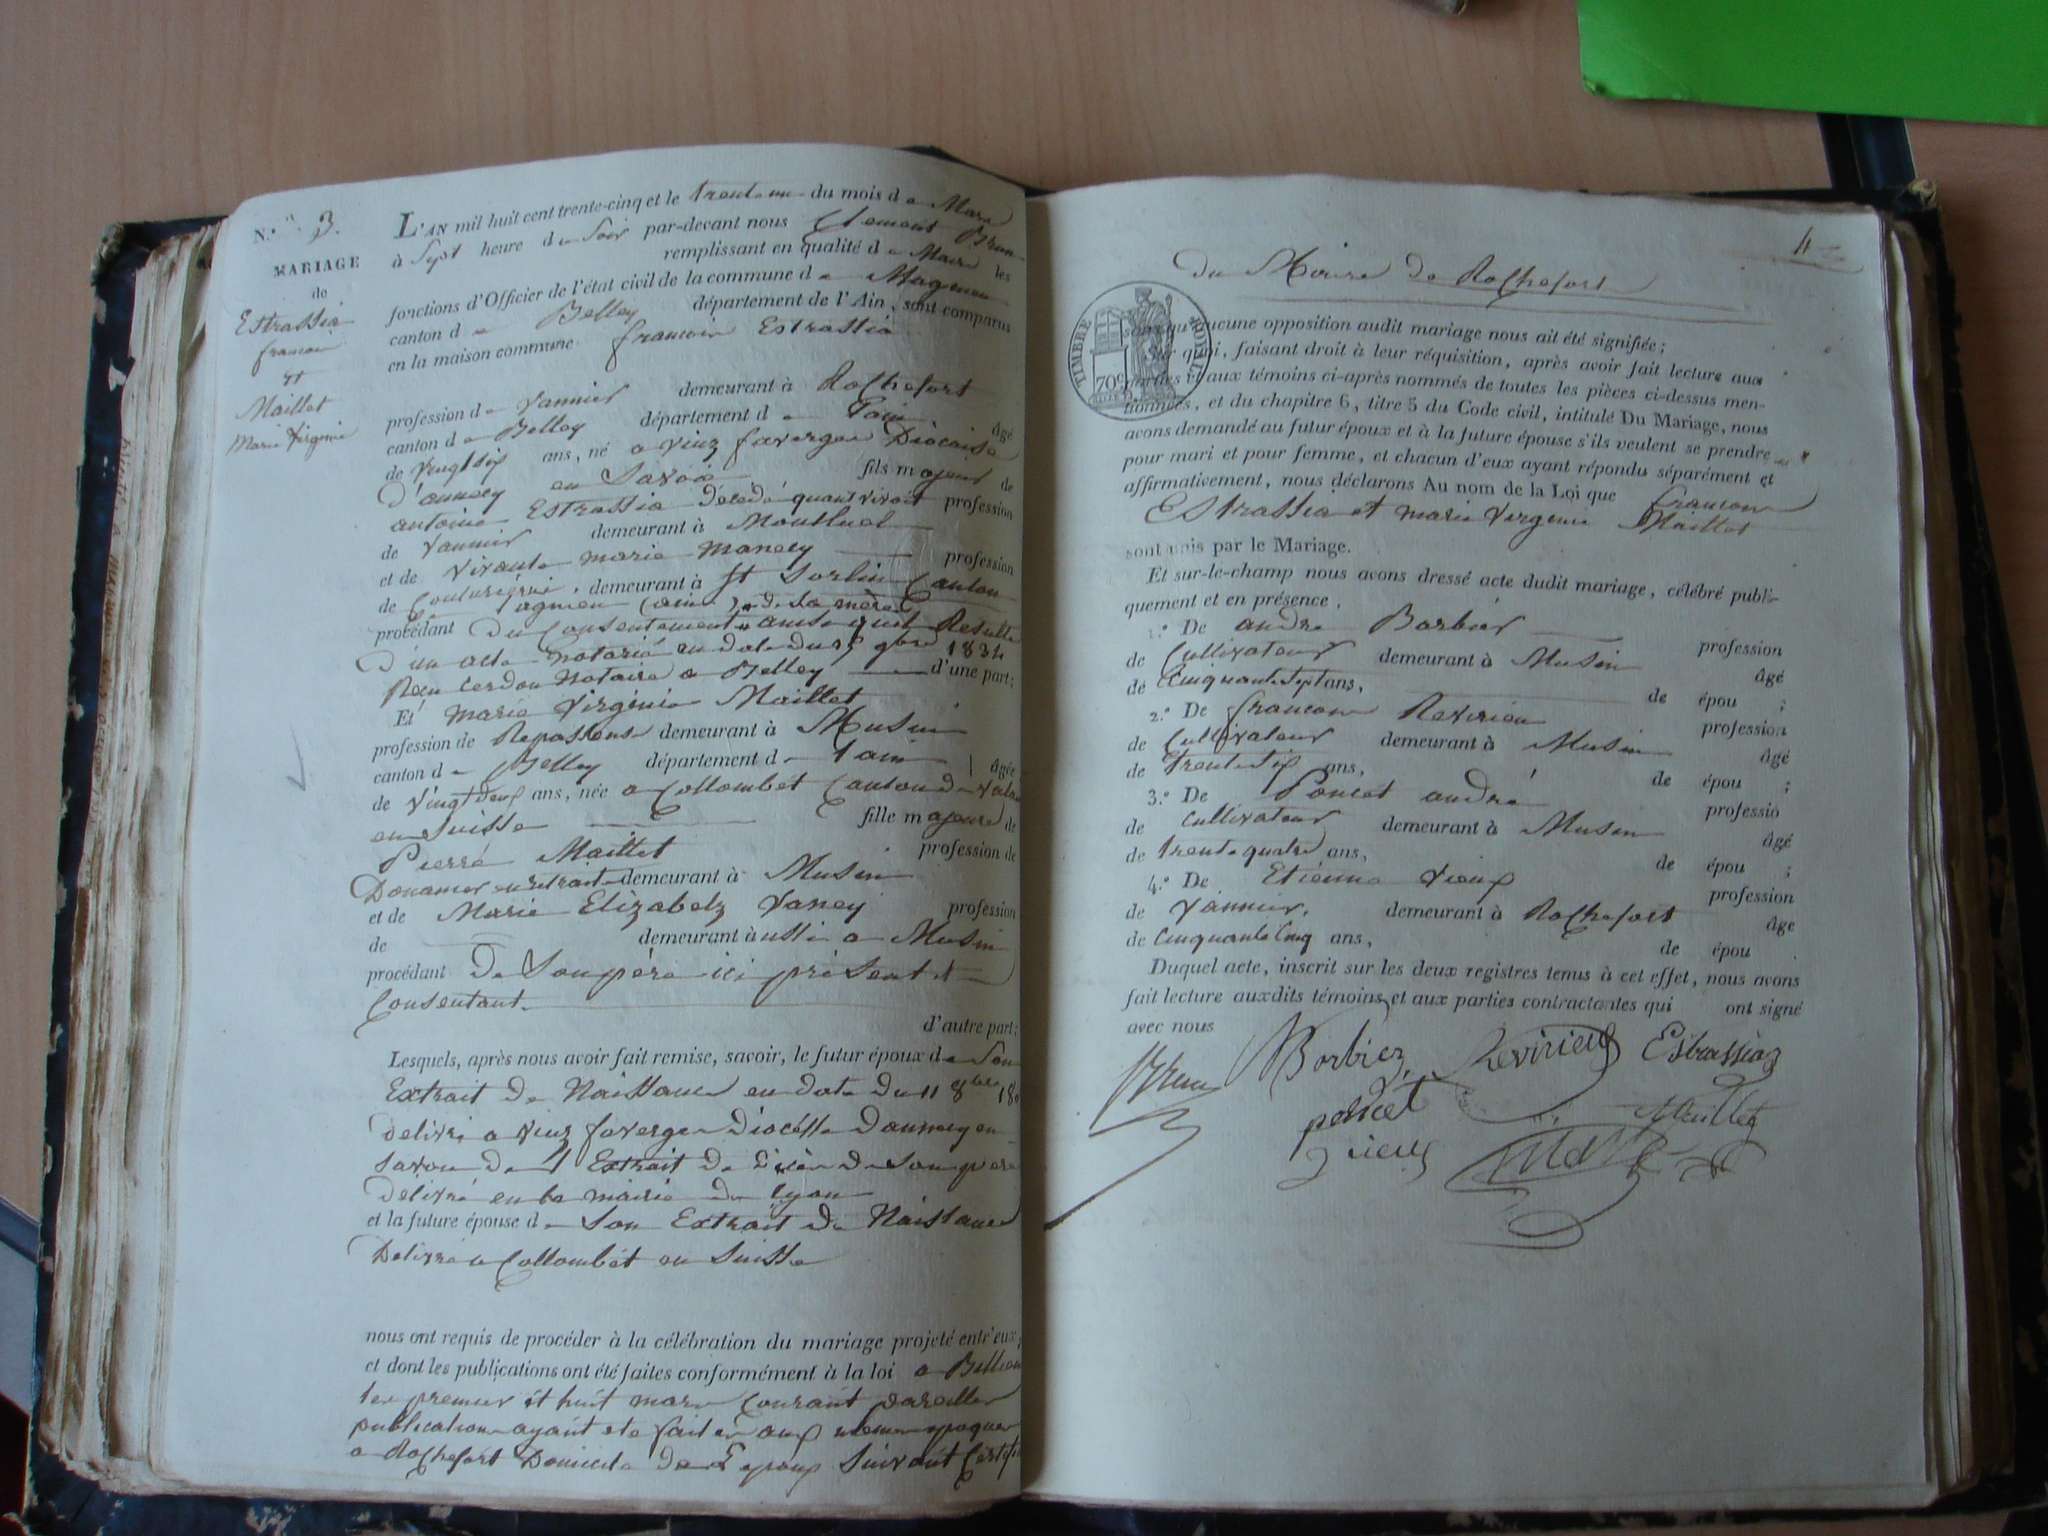 N.º 3.
MARIAGE
de
Estrassia
francois
et
Maillet
Marie Virginie
L'AN mil huit cent trente-cinq et le trente un du mois de Mars
à Sept heure du Soir par-devant nous Clement Brun
remplissant en qualité de Maire les
fonctions d'Officier de l'état civil de la commune de Magnieu
canton de Belley département de l'Ain, sont comparus
en la maison commune francois Estrassia
profession de Vannier demeurant à Rochefort
canton de Belley département de l'ain âgé
de Vingt six ans, né a Vieuz faverges Diocaise
d'annecy en Savoie fils majeur de
antoine Estrassia décédé quant vivait profession
de Vannier demeurant à Montluel
et de Vivante marie Manecy profession
de Couturière, demeurant à St Sorlin Canton
Lagnieu (ain) de sa mère
procédant du Consentement ainsi quil Résulte
d'un acte notarié en date du 9bre 1834
Reçu Cerdon Notaire a Belley d'une part;
Et marie Virginie Maillet
profession de Repasseuse demeurant à Musin
canton de Belley département de l'ain âgée
de Vingt deux ans, née a Collombet Canton de Valais
en Suisse fille majeure de
Pierre Maillet profession de
Douanier en retrait demeurant à Musin
et de Marie Elizabetz Vaney profession
de demeurant aussi a Musin
procédant De Son père ici présent et
Consentant
d'autre part;
Lesquels, après nous avoir fait remise, savoir, le futur époux de Son
Extrait de Naissance en date du 11 8bre 18
delivré a Vieuz faverges Diocésse Dannecy en
Savoie de l'Extrait de Décès de Son père
delivré en la mairie de Lyon
et la future épouse de Son Extrait de Naissance
Delivré a Collombét en Suisse
nous ont requis de procéder à la célébration du mariage projeté entr'eux;
et dont les publications ont été faites conformément à la loi a
les premier et huit mars Courant pareilles
publications ayant été faites aux mêmes epoques
a Rochefort Domicile de L'epoux Suivant Certificat
4
du Maire de Rochefort
TIMBRE ROYAL
70c
sans qu'aucune opposition audit mariage nous ait été signifiée;
Sur quoi, faisant droit à leur réquisition, après avoir fait lecture aux
parties et aux témoins ci-après nommés de toutes les pièces ci-dessus men-
tionnées, et du chapitre 6, titre 5 du Code civil, intitulé Du Mariage, nous
avons demandé au futur époux et à la future épouse s'ils veulent se prendre
pour mari et pour femme, et chacun d'eux ayant répondu séparément et
affirmativement, nous déclarons Au nom de la Loi que francois
Estrassia et marie Virginie Maillet
sont unis par le Mariage.
Et sur-le-champ nous avons dressé acte dudit mariage, célébré publi-
quement et en présence,
1.º De andré Barbier profession
de Cultivateur demeurant à Musin âgé
de Cinquante Sept ans, de épou ;
2.º De francois Revirieu profession
de Cultivateur demeurant à Musin âgé
de trente Six ans, de épou ;
3.º De Poncet andré professio
de Cultivateur demeurant à Musin âgé
de trente quatre ans, de épou ;
4.º De Etiénne Vieux profession
de Vannier, demeurant à Rochefort âgé
de Cinquante Cinq ans, de épou
Duquel acte, inscrit sur les deux registres tenus à cet effet, nous avons
fait lecture auxdits témoins et aux parties contractantes qui ont signé
avec nous
Brun Borbiez Revirieux Estrassiaz
poncet Maillet
Vieux